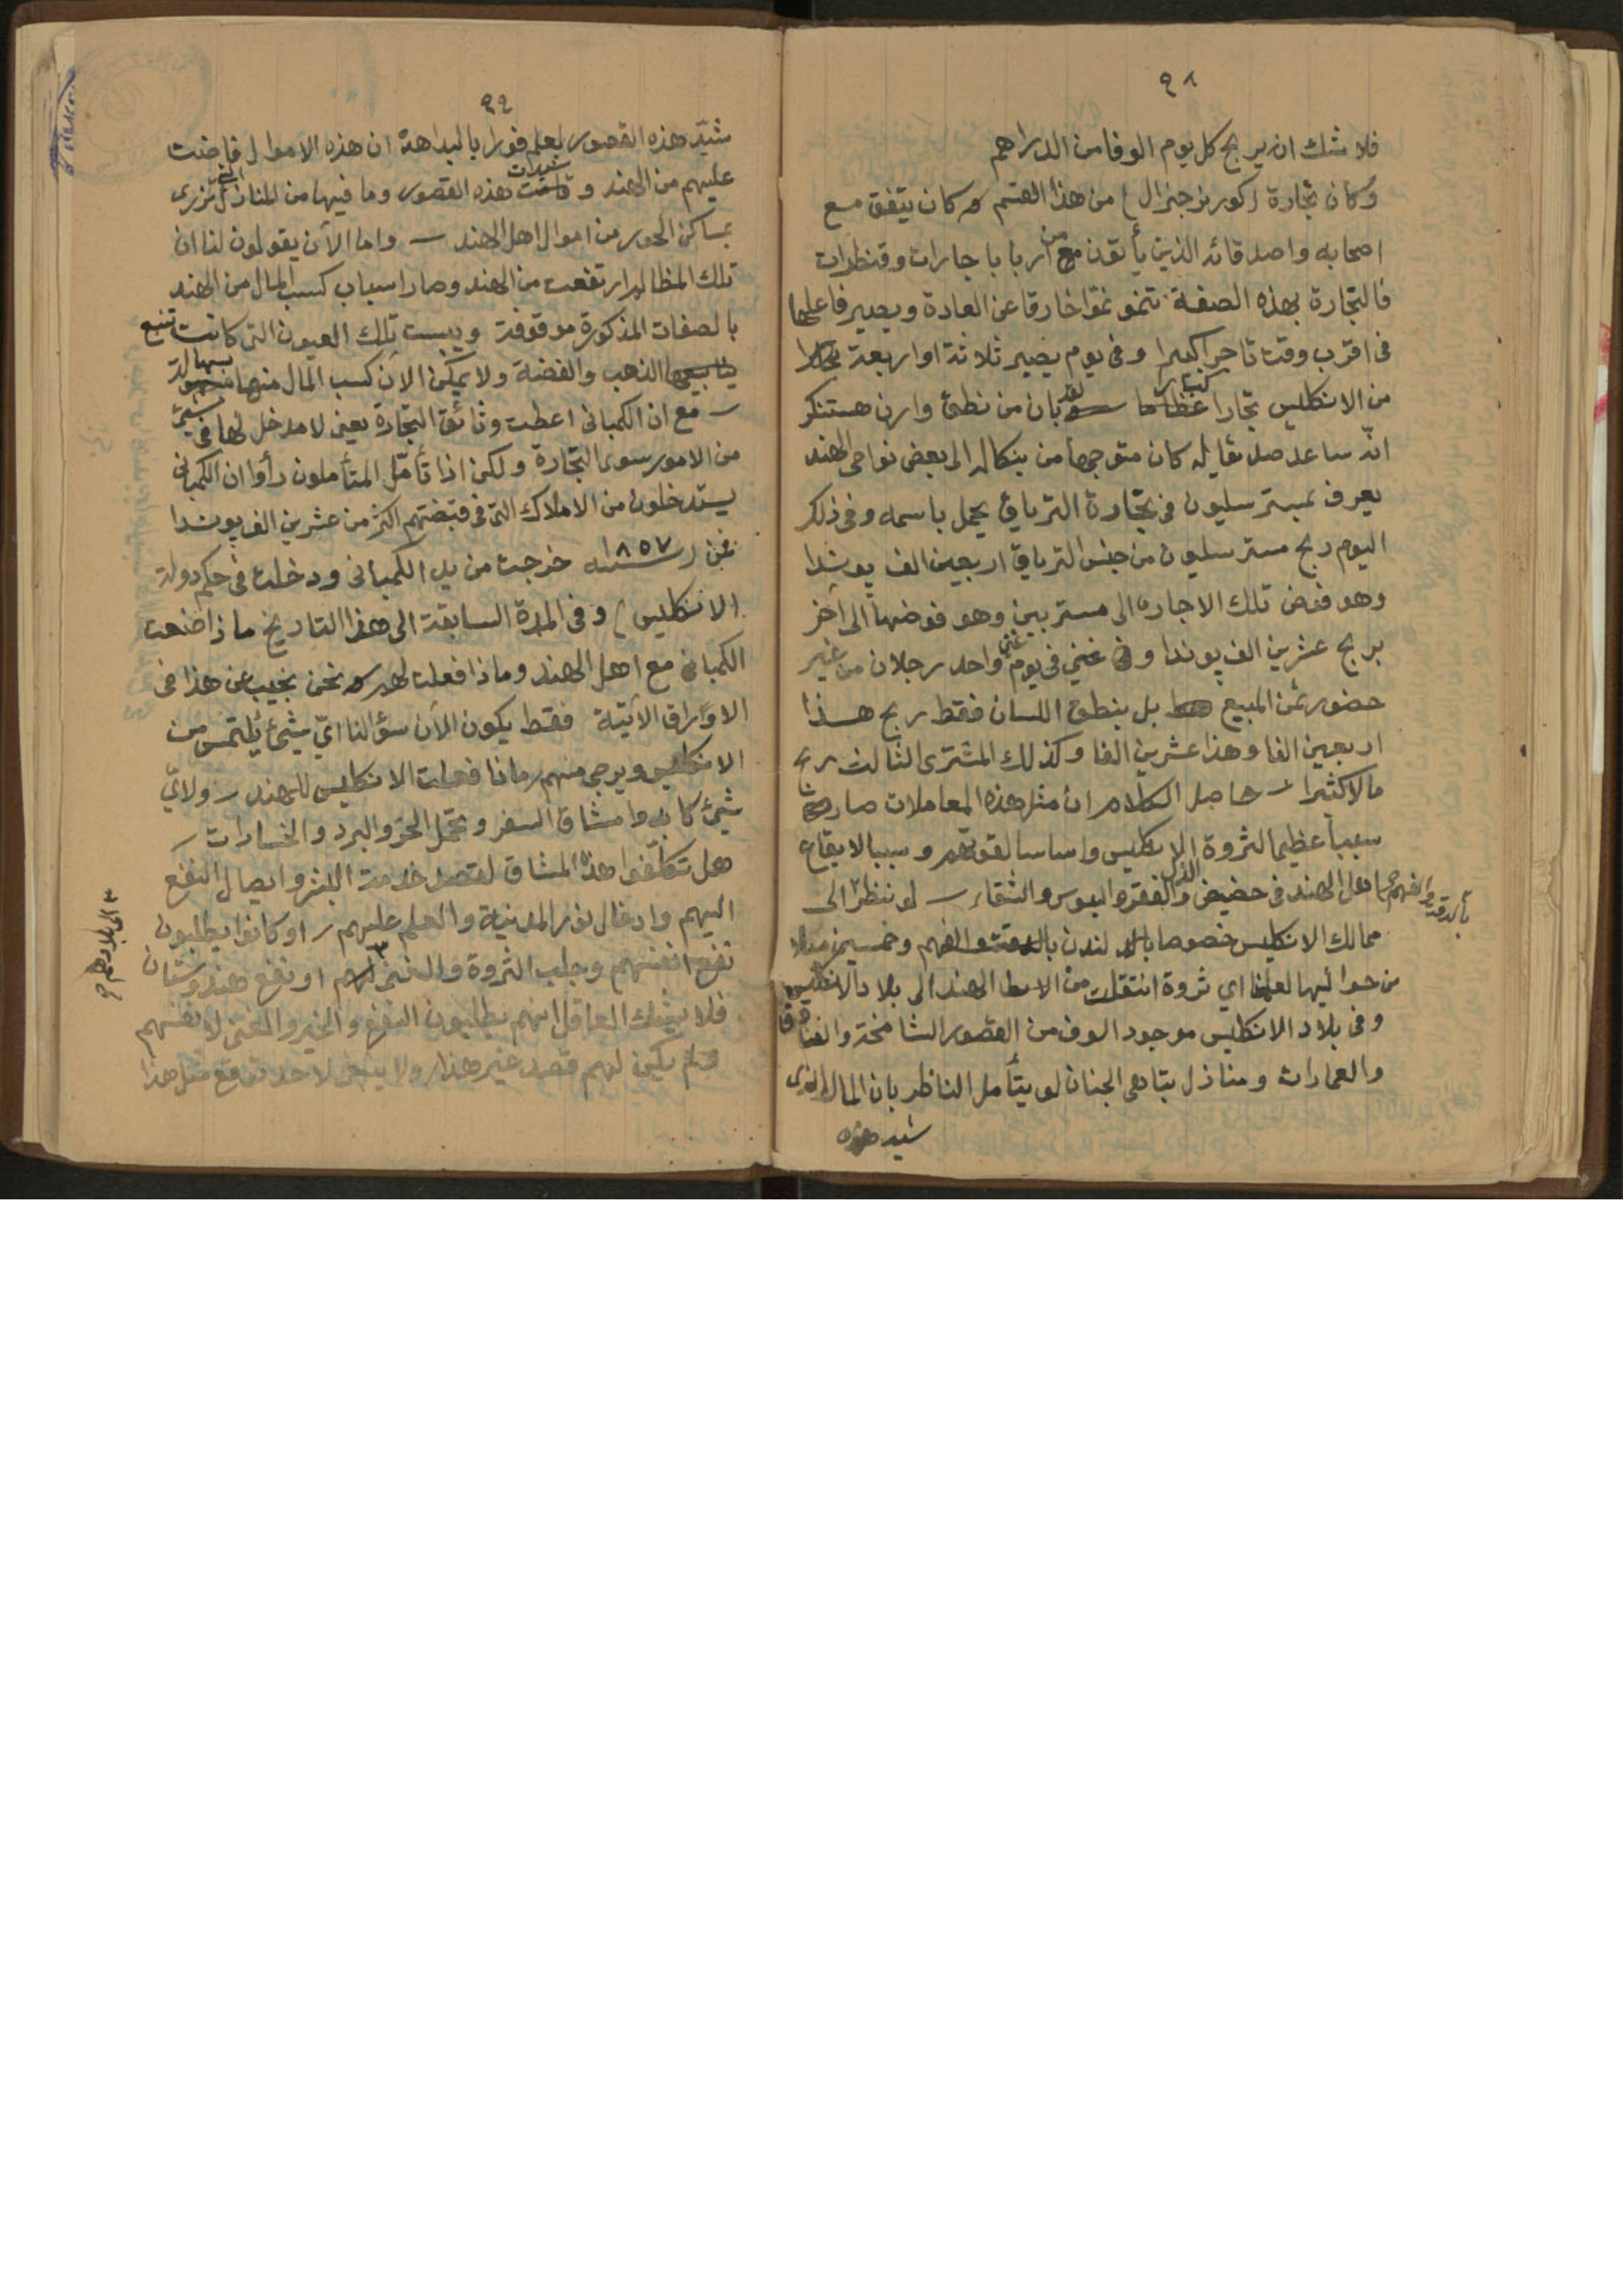 ٩٨
فلا شك ان يربح كل يوم الوفا من الدراهم
وكان تجارة (كورنر جنرال) من هذا القسم وكان يتفق مع
اصحابه واصدقائه الذين يأتون من اربابا جارات وقنظرات
فالتجارة بهذه الصفة تنمو نموا خارقا عن العادة ويصير فاعلها
فى اقرب وقت تاجرا كبيرا وفى يوم يصير ثلاثة او اربعة
من الانكليس تجارا كبارا بان من نطئ وارن هستنكر
انه ساعد صديقا له كان متوجها من بنكاله الى بعض نواحى الهند
يعرف بمستر سليون فى تجارة الترياق يحمل باسمه وفى ذلك
اليوم ربح مستر سليون من جنس الترياق اربعين الف پوندا
وهو فوض تلك الاجاره الى مستر بين وهو فوضها الى آخر
بربح عشرين الف پوندا و غنى فى يوم واحد رجلان من غير
حضور ثمن المبيع بل بنطق اللسان فقط ربح هذا
اربعين الفا وهذا عشرين الفا وكذلك المشترى الثالث ربح
مالا كثيرا – حاصل الكلام ان مثل هذه المعاملات صارت
سببا عظيما لثروة الانكليس واساسا لقوتهم وسببا لايقاع
اهل الهند فى حضيض الذل والفقر والبوس والشقاء – لو ننظر الى
بالدقة والفهم
ممالك الانكليس خصوصا لندن وخمسين ميلا
من حواليها لعلمنا اي ثروة انتقلت من الهند الى بلاد الانكليس
وفى بلاد الانكليس موجود الوف من القصور الشامخة والفنادق
والعمارات ومنازل تباهى الجنان لو يتأمل الناظر بان المال الذى
شيد هذه
٩٩
شيّد هذه القصور لعلم فورا بالبداهة ان هذه الاموال فاضت
عليهم من الهند و شيدت هذه القصور وما فيها من المنازل التى تزرى
بمساكن الحور من اموال اهل الهند – واما الآن يقولون لنا ان
تلك المظالم ارتفعت من الهند وصار اسباب كسب المال من الهند
بالصفات المذكورة موقوفة ويبست تلك العيون التى كانت تنبع
الذهب والفضة ولا يمكن الآن كسب المال منها بسهالة
– مع ان الكمپانى اعطت وثائق التجارة يعنى لا مدخل لها فى شئ
من الامور سوى التجارة ولكن اذا تأمّل المتأملون رأوا ان الكمپانى
يستدخلون من الاملاك التى فى قبضتهم اكثر من عشرين الف پوندا
فمن (سنة ١٨٥٧ خرجت من يد الكمپانى ودخلت فى حكم دولة
الانكليس) وفى المدة السابقة الى هذا التاريخ ماذا صنعت
الكمپانى مع اهل الهند وماذا فعلت لهم نحن نجيب عن هذا فى
الاوراق الآتية فقط يكون الآن سؤالنا اىّ شئ يُلتمس من
الانكليس ويرجى منهم ماذا فعلت الانكليس للهند – ولاىّ
شئ كابدوا مشاق السفر وتحمّل الحرّ والبرد والخسارات –
هل تكلّفوا هذه المشاق لقصد خدمة البشر وايصال النفع
اليهم وادخال نور المدنية والعلم عليهم – او كانوا يطلبون
نفع انفسهم وجلب الثروة والغنى ٣ او نفع هندوستان
٣ الى بلادهم
فلا يشك العاقل انهم يطلبون النفع والخير والغنى لانفسهم
ولم يكن لهم قصد غير هذا ولا ينبغى لاحد توقع مثل هذا